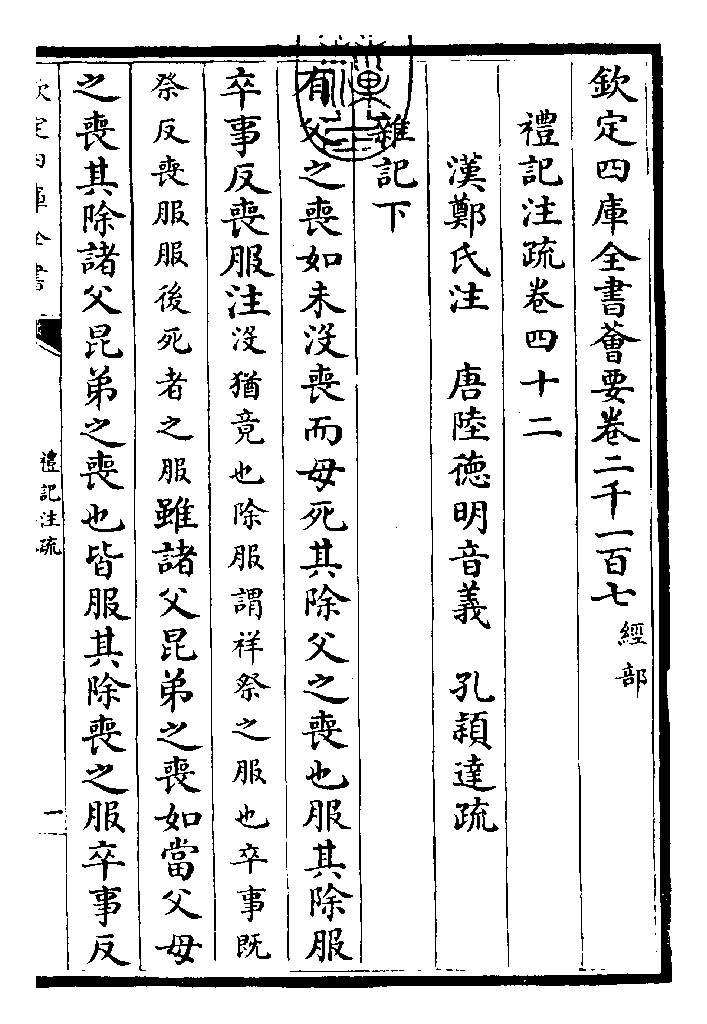 欽定四庫全書薈要卷二千一百七經部
禮記注疏卷四十二
漢鄭氏注 唐陸德明音義 孔穎達疏
雜記下
有父之喪如未沒喪而母死其除父之喪也服其除服
卒事反喪服注沒猶竟也除服謂祥祭之服也卒事既
祭反喪服服後死者之服雖諸父昆弟之喪如當父母
之喪其除諸父昆弟之喪也皆服其除喪之服卒事反
欽定四庫全書
禮記注疏
一